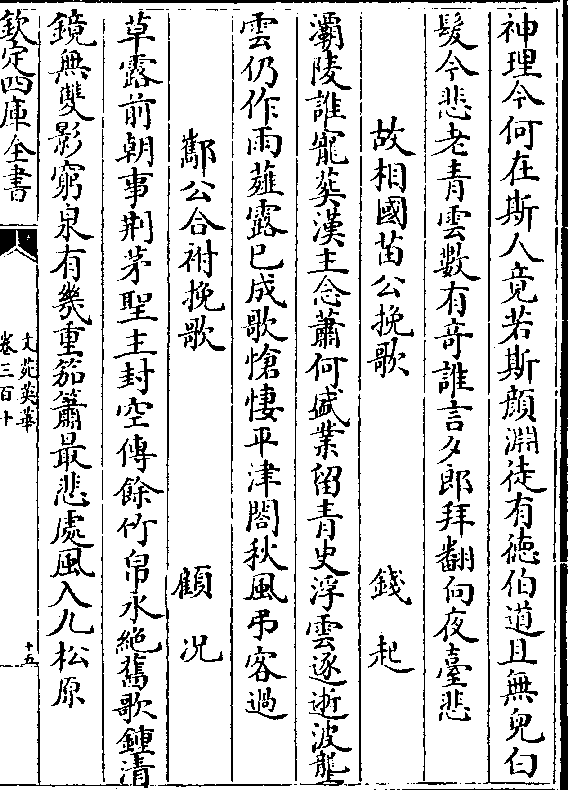 神理今何在斯人竟若斯顔淵徒有徳伯道且無兒白
髮今悲老青雲數有竒誰言夕郎拜翻向夜臺悲
故相國苗公挽歌　錢起
灞陵誰寵葬漢主念蕭何盛業留青史浮雲逐逝波壟
雲仍作雨薤露已成歌愴悽平津閤秋風弔客過
鄬公合祔挽歌　顧况
草露前朝事荆茅聖主封空傳餘竹帛永絶舊歌鍾清
鏡無雙影窮泉有幾重笳簫最悲處風入九松原
欽定四庫全書
文苑英華
卷三百十
十五